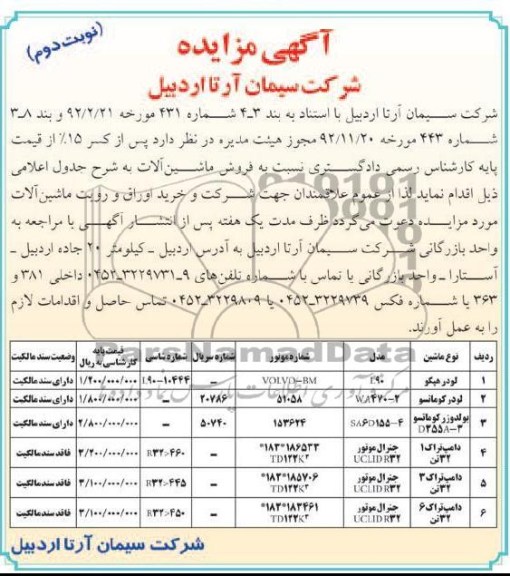 (نوبت دوم)
آگهی مزایده
شرکت سیمان آرتا اردبیل
شرکت سیمان آرتا اردبیل با استناد به بند ۳-۴ شماره ۴۳۱ مورخه ۹۲/۲/۲۱ و بند ۸-۳
شماره ۴۴۳ مورخه ۹۲/۱۱/۲۰ مجوز هیئت مدیره در نظر دارد پس از کسر ۱۵٪ از قیمت
پایه کارشناس رسمی دادگستری نسبت به فروش ماشین‌آلات به شرح جدول اعلامی
ذیل اقدام نماید لذا از عموم علاقمندان جهت شرکت و خرید اوراق و رویت ماشین‌آلات
مورد مزایده دعوت می‌گردد ظرف مدت یک هفته پس از انتشار آگهی با مراجعه به
واحد بازرگانی شرکت سیمان آرتا اردبیل به آدرس اردبیل ـ کیلومتر ۲۰ جاده اردبیل ـ
آستارا ـ واحد بازرگانی یا تماس با شماره تلفن‌های ۹-۳۲۲۹۷۳۱-۰۴۵۲ داخلی ۳۸۱ و
۳۶۳ یا شماره فکس ۳۲۲۹۷۳۹-۰۴۵۲ یا ۳۲۲۹۸۰۹-۰۴۵۲ تماس حاصل و اقدامات لازم
را به عمل آورند.
ردیف نوع ماشین مدل شماره موتور شماره سریال شماره شاسی قیمت پایه کارشناسی به ریال وضعیت سند مالکیت
۱ لودر هپکو L۹۰ VOLVO-BM – L۹۰-۱۰۴۴۴ ۱/۲۰۰/۰۰۰/۰۰۰ دارای سند مالکیت
۲ لودر کوماتسو WA۴۷۰-۲ ۵۱۰۵۸ ۲۰۷۸۶ – ۱/۸۰۰/۰۰۰/۰۰۰ دارای سند مالکیت
۳ بولدوزر کوماتسو D۳۵۵A-۳ SA۶D۱۵۵-۴ ۱۵۳۶۲۴ ۵۰۷۴۰ – ۲/۸۰۰/۰۰۰/۰۰۰ دارای سند مالکیت
۴ دامپ‌تراک ۱ ۳۲تن جنرال موتور UCLID R۳۲ *۱۸۳*۱۸۶۵۳۳ TD۱۲۲K۲ – R۳۲>۴۶۰ ۳/۲۰۰/۰۰۰/۰۰۰ فاقد سند مالکیت
۵ دامپ‌تراک ۳ ۳۲تن جنرال موتور UCLID R۳۲ *۱۸۳*۱۸۵۷۰۶ TD۱۲۲K۲ – R۳۲>۴۴۵ ۳/۱۰۰/۰۰۰/۰۰۰ فاقد سند مالکیت
۶ دامپ‌تراک ۶ ۳۲تن جنرال موتور UCLID R۳۲ *۱۸۳*۱۸۳۴۶۱ TD۱۲۲K۲ – R۳۲>۴۵۰ ۳/۱۰۰/۰۰۰/۰۰۰ فاقد سند مالکیت
شرکت سیمان آرتا اردبیل
ParsNamadData